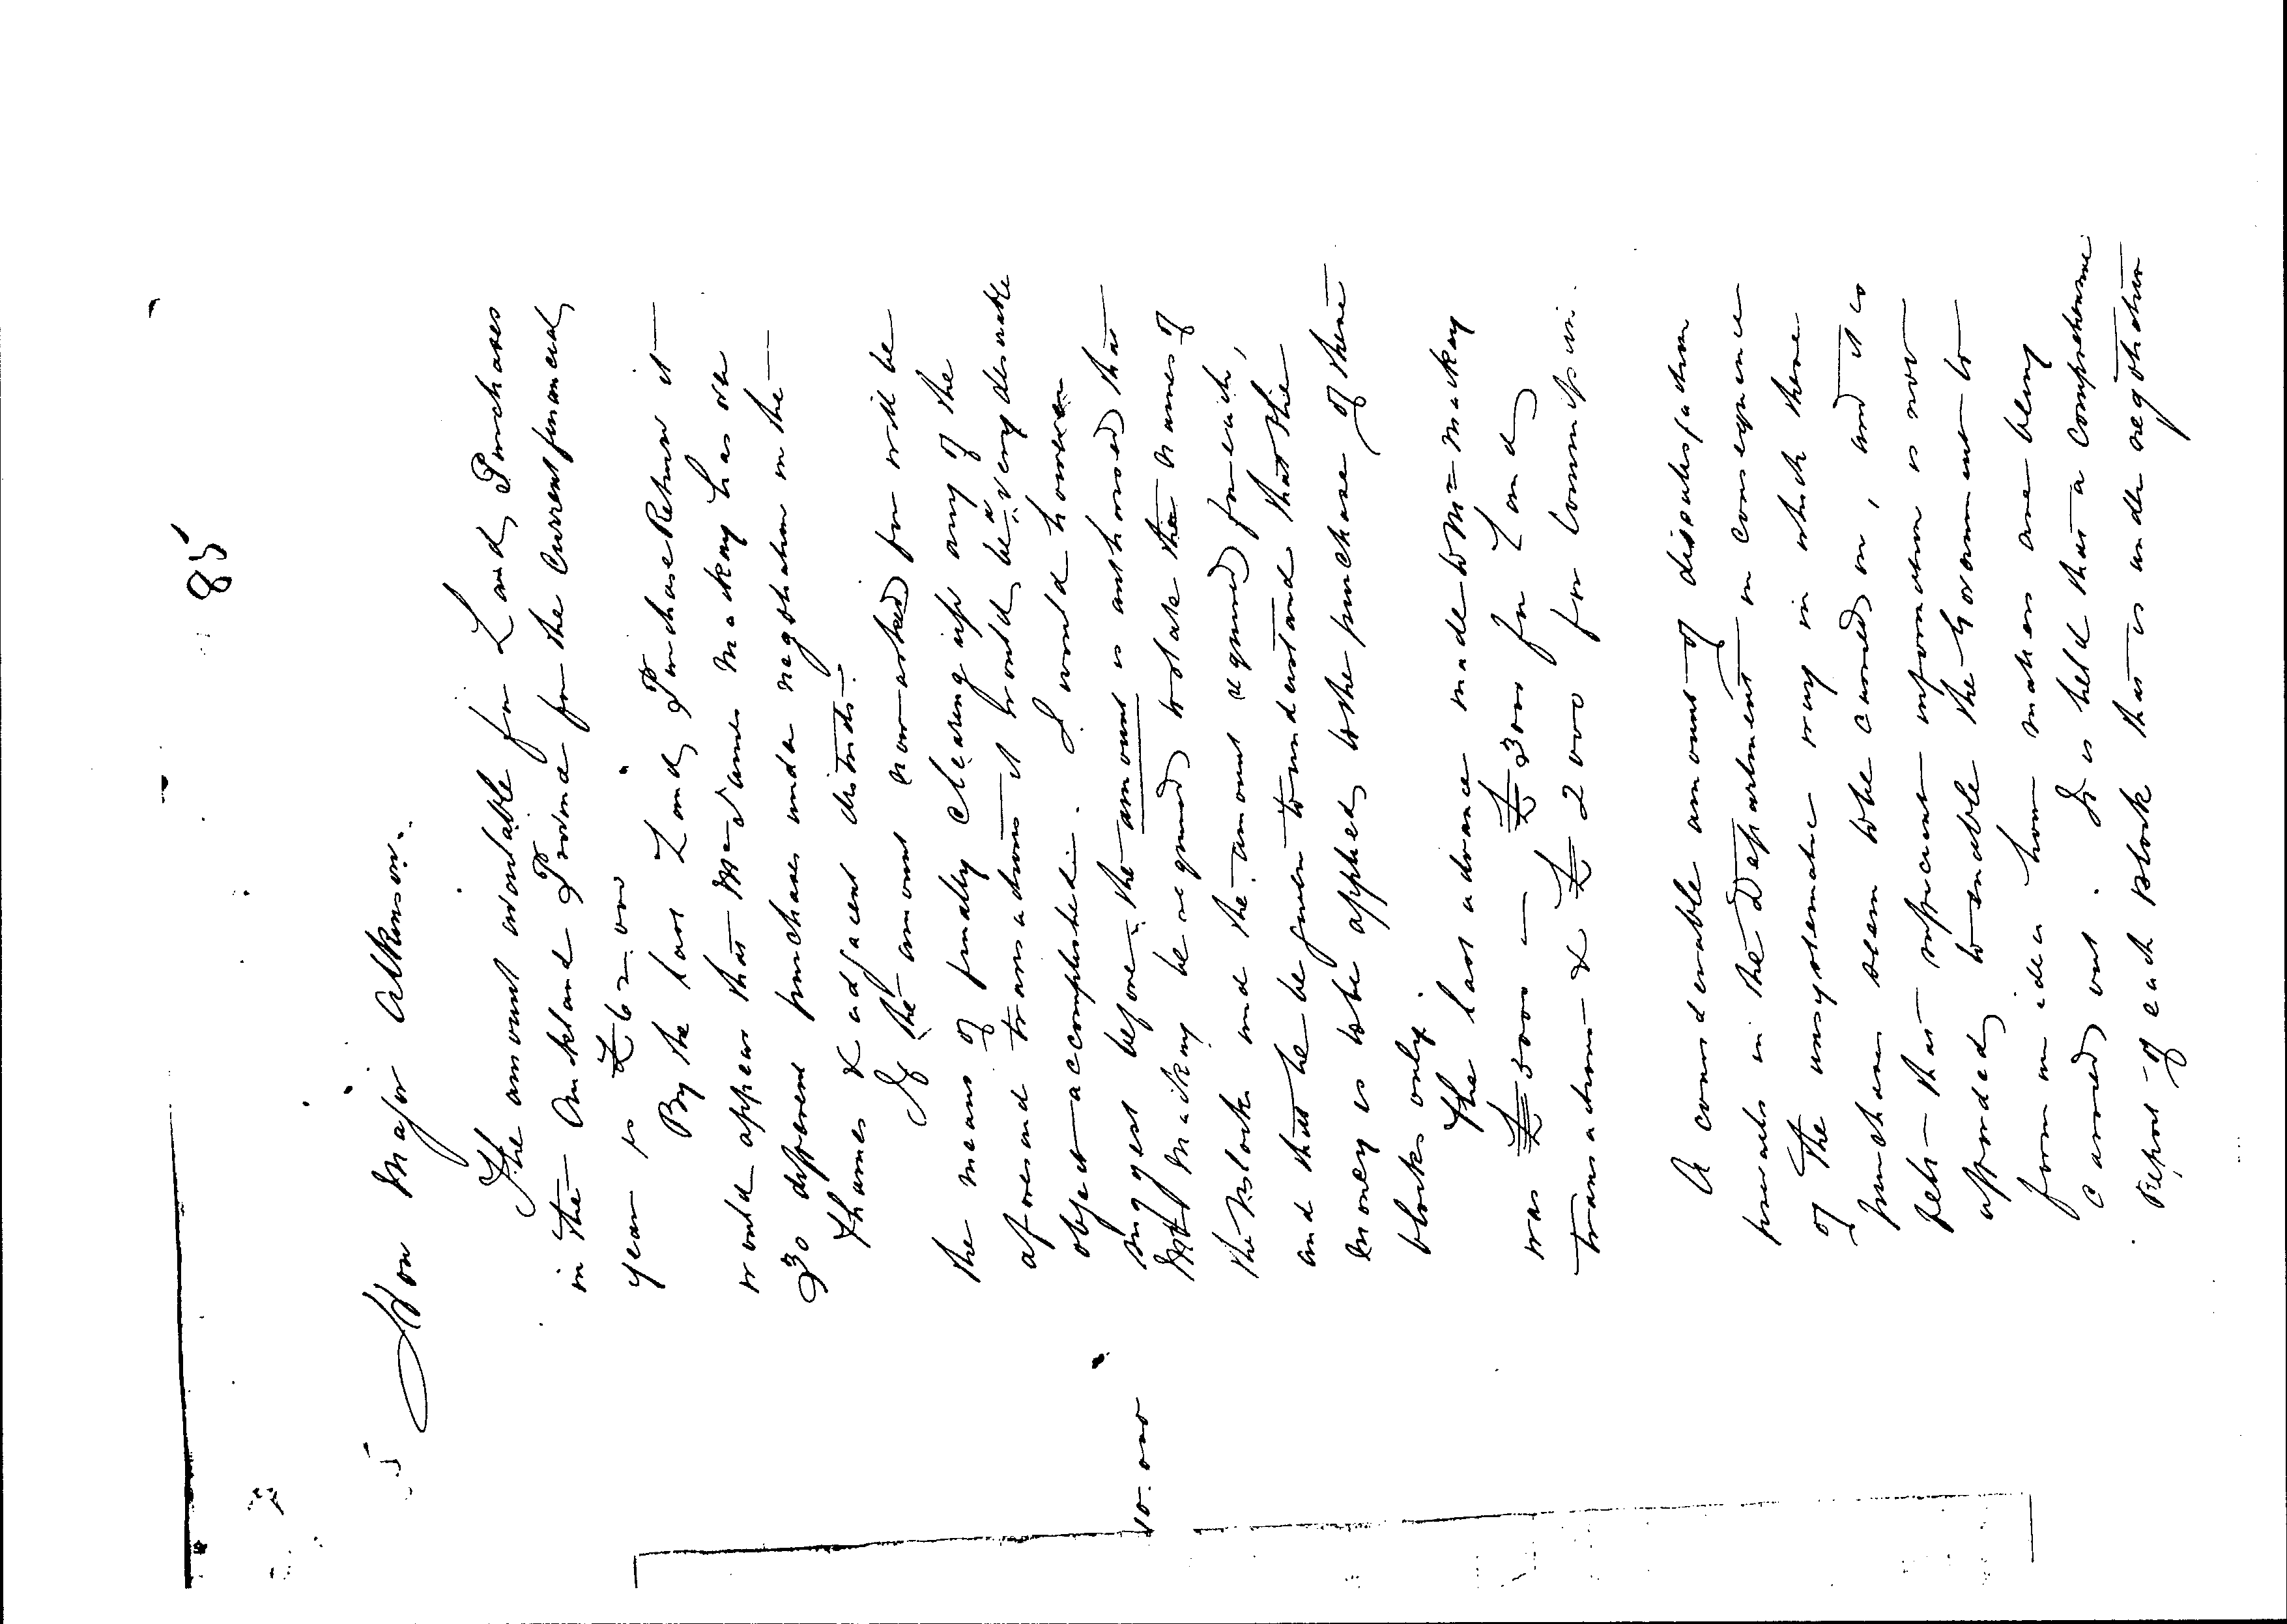 85
Hon Major Atkinson.
The amount available for Land Purchases
in the Auckland Province for the Current financial
year is £62.000
By the last Land Purchase Return it
would appear that Mr James Mackay has over
30 different purchases under negotiation in the
Thames & adjacent districts.
If the amount now asked for will be
the means of finally clearing up any of the
aforesaid transactions it would be a very desirable
object accomplished. I would however
suggest before the amount is authorised that
10.000
Mr Mackay be required to state the names of
the blocks and the amount required for each,
and that he be given to understand that the
money is to be applied to the purchase of these
blocks only.
The last advance made to Mr Mackay
was £5000 — £3000 for Land
transactions & £2000 for Commission.
A considerable amount of dissatisfaction
prevails in the Department in consequence
of the unsystematic way in which these
purchases seem to be carried on, and it is
felt that sufficient information is not
afforded to enable the Government to
form an idea how matters are being
carried out. It is held that a comprehensive
Report of each block that is under negotiation